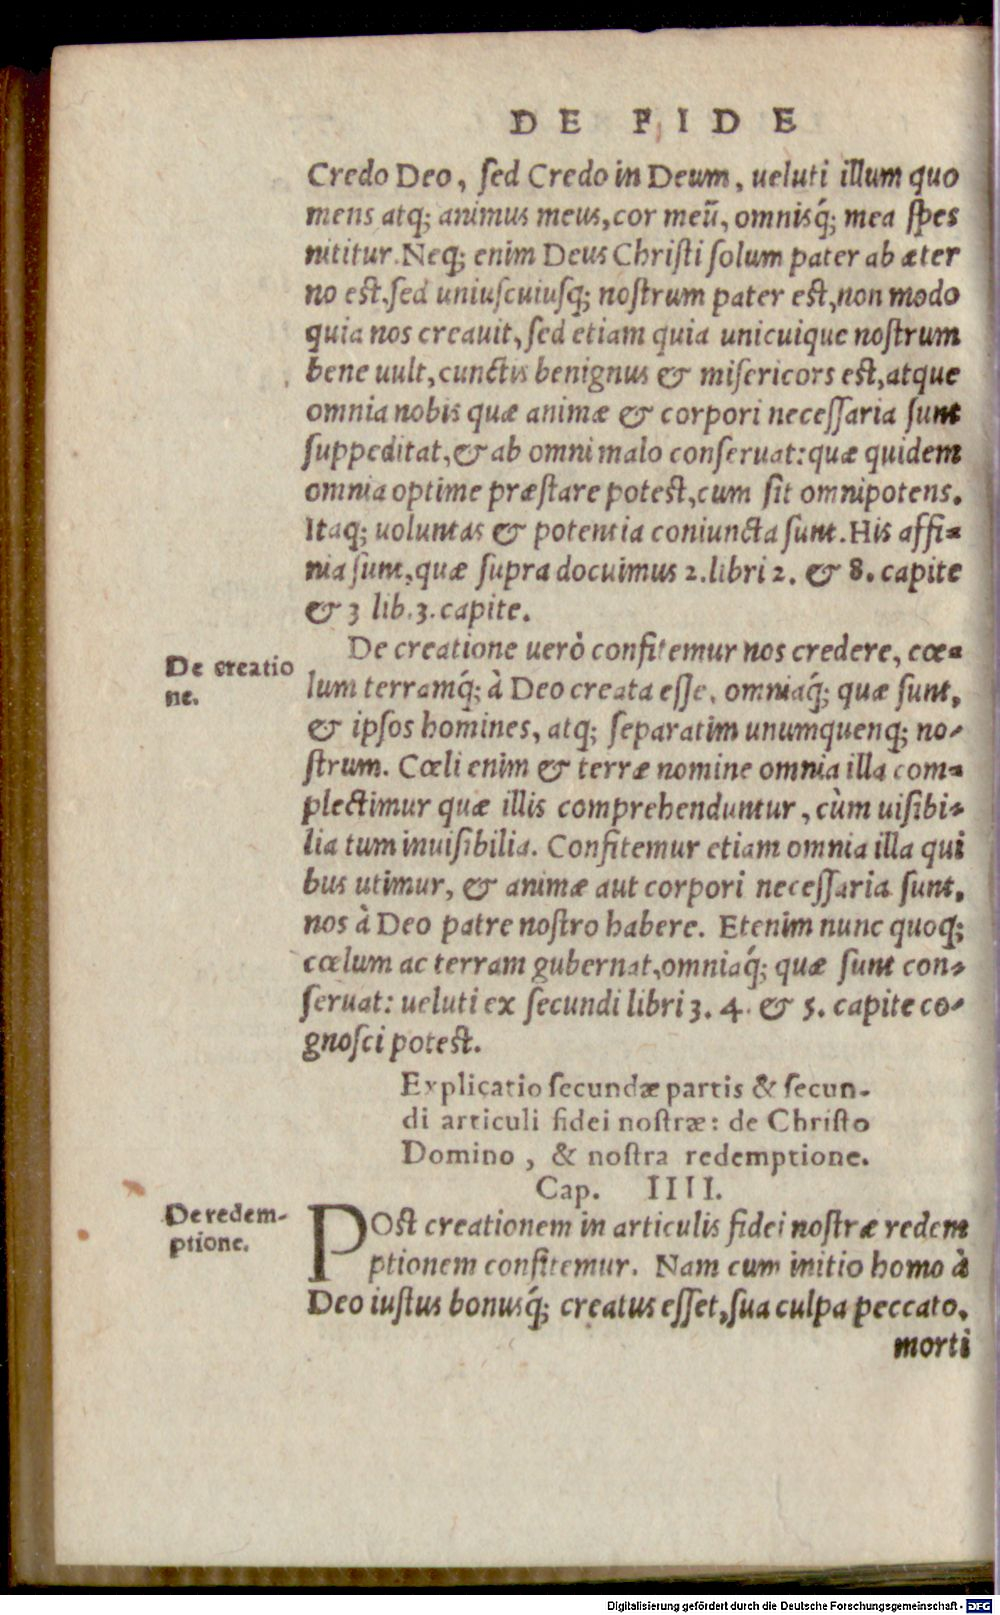 DE FIDE
Credo Deo, sed Credo in Deum, ueluti illum quo
mens atq; animus meus, cor meũ, omnisq́; mea spes
nititur. Neq; enim Deus Christi solum pater ab æter
no est, sed uniuscuiusq; nostrum pater est, non modo
quia nos creauit, sed etiam quia unicuique nostrum
bene uult, cunctis benignus & misericors est, atque
omnia nobis quæ animæ & corpori necessaria sunt
suppeditat, & ab omni malo conseruat: quæ quidem
omnia optime præstare potest, cum sit omnipotens.
Itaq; uoluntas & potentia coniuncta sunt. His affi-
nia sunt, quæ supra docuimus 2. libri 2. & 8. capite
& 3 lib. 3. capite.
De creatio
ne.
De creatione uerò confitemur nos credere, cœ-
lum terramq́; à Deo creata esse, omniaq́; quæ sunt,
& ipsos homines, atq; separatim unumquenq; no-
strum. Cœli enim & terræ nomine omnia illa com-
plectimur quæ illis comprehenduntur, cùm uisibi-
lia tum inuisibilia. Confitemur etiam omnia illa qui
bus utimur, & animæ aut corpori necessaria sunt,
nos à Deo patre nostro habere. Etenim nunc quoq;
cœlum ac terram gubernat, omniaq́; quæ sunt con-
seruat: ueluti ex secundi libri 3. 4. & 5. capite co-
gnosci potest.
Explicatio secundæ partis & secun-
di articuli fidei nostræ: de Christo
Domino, & nostra redemptione.
Cap. IIII.
De redem-
ptione.
POst creationem in articulis fidei nostræ redem
ptionem confitemur. Nam cum initio homo à
Deo iustus bonusq́; creatus esset, sua culpa peccato,
morti
Digitalisierung gefördert durch die Deutsche Forschungsgemeinschaft - DFG